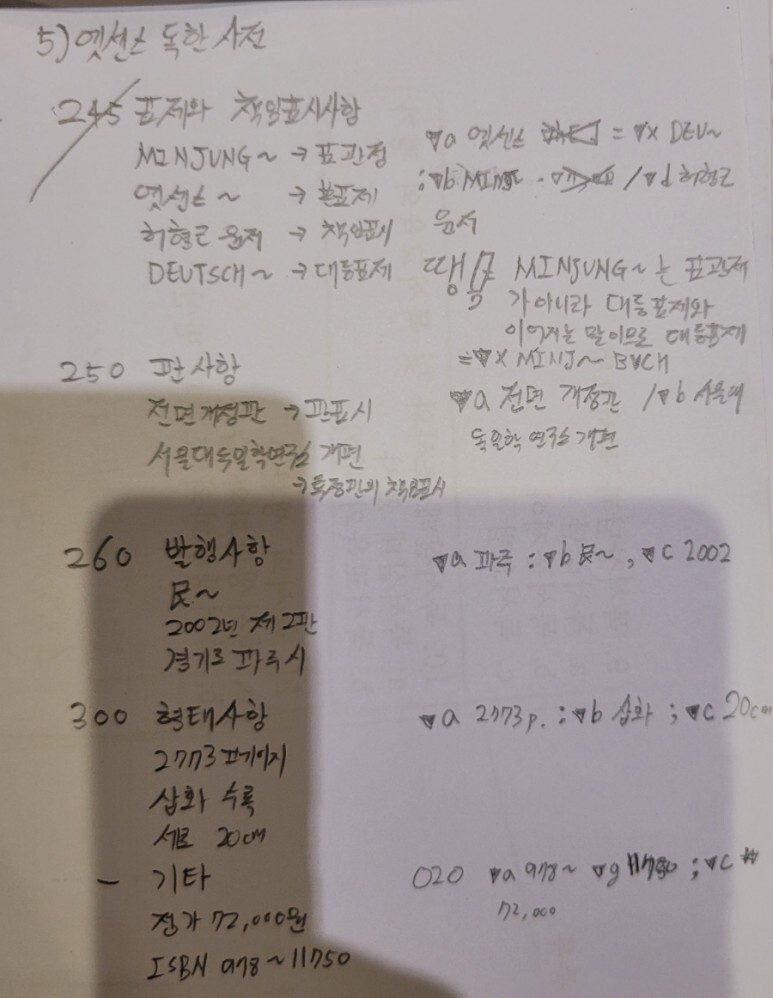 5) 엣센스 독한 사전
245 표제와 책임표시사항
MINJUNG~ → 표관정
엣센스 ~ → 본표제
허형근 윤저 → 책임표시
DEUTSCH~ → 대등표제
▼a 엣센스 = ▼x DEU~
: ▼b MINJU / ▼d 허형근
윤저
땡 MINJUNG~는 표관제
가 아니라 대등표제와
이어지는 말이므로 대등표제
=▼x MINJ~ BUCH
250 판사항
전면개정판 → 판표시
서울대독일학연구소 개편
→ 특정판의 책임표시
▼a 전면 개정판 / ▼b 서울대
독일학 연구소 개편
260 발행사항
民~
2002년 제2판
경기도 파주시
▼a 파주 : ▼b 民~ , ▼c 2002
300 형태사항
2773 페이지
삽화 수록
세로 20cm
▼a 2773 p. : ▼b 삽화 ; ▼c 20cm
- 기타
정가 72,000원
ISBN 978~11750
020 ▼a 978~ ▼g 11750 ; ▼c ₩
72,000